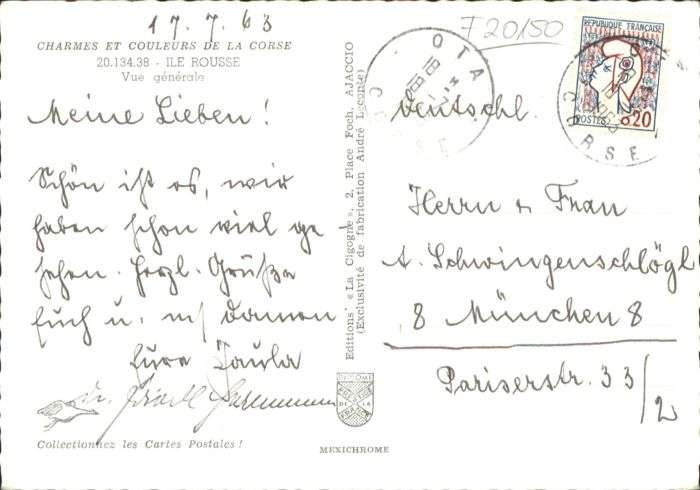 17.7.63
F 20150
CHARMES ET COULEURS DE LA CORSE
20.134.38 - ILE ROUSSE
Vue générale
Meine Lieben!
Schön ist es, wir
haben schon viel ge-
sehen. Herzl. Grüße
Euch u.
Eure Paula
Collectionnez les Cartes Postales!
Editions "La Cigogne", 2, Place Foch, AJACCIO
(Exclusivité de fabrication André Leconte)
MEXICHROME
OTA
CORSE
REPUBLIQUE FRANÇAISE
POSTES 0.20
OTA
CORSE
Deutschl.
Herrn u Frau
A. Schwingenschlögl
8 München 8
Pariserstr. 33/2